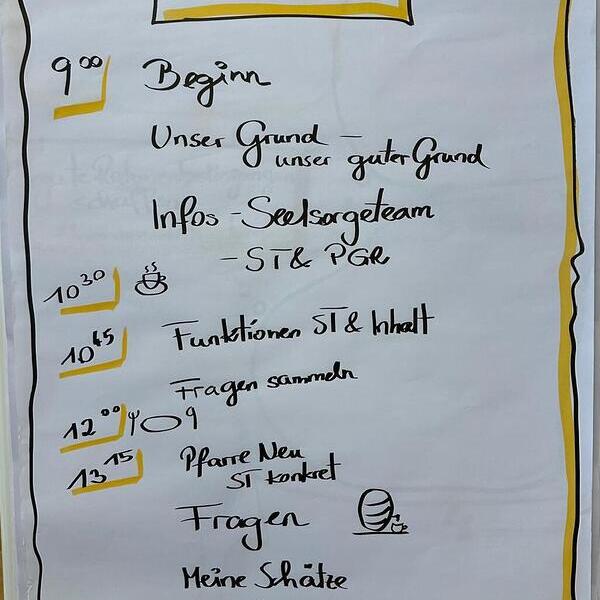 9⁰⁰ Beginn
Unser Grund –
unser guter Grund
Infos - Seelsorgeteam
- ST & PGR
10³⁰
10⁴⁵ Funktionen ST & Inhalt
Fragen sammeln
12⁰⁰
13¹⁵ Pfarre Neu
ST konkret
Fragen
Meine Schätze